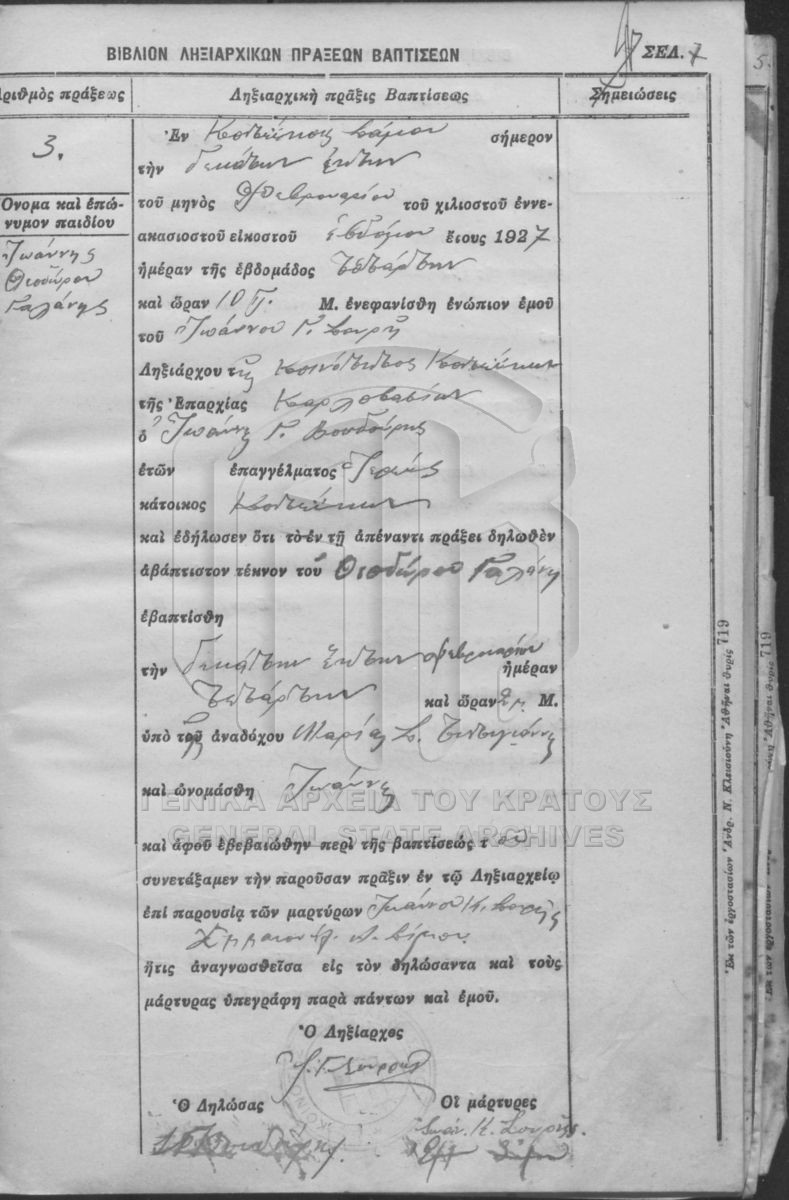 ΒΙΒΛΙΟΝ ΛΗΞΙΑΡΧΙΚΩΝ ΠΡΑΞΕΩΝ ΒΑΠΤΙΣΕΩΝ
ΣΕΛ. 7
5.
Ἀριθμὸς πράξεως
Ληξιαρχικὴ πρᾶξις Βαπτίσεως
Σημειώσεις
3.
Ὄνομα καὶ ἐπώ-
νυμον παιδίου
Ἰωάννης
Θεοδώρου
Γαλάνης
Ἐν Κοντεΐκοις Σάμου σήμερον
τὴν δεκάτην ἕκτην
τοῦ μηνὸς Φεβρουαρίου τοῦ χιλιοστοῦ ἐννε-
ακασιοστοῦ εἰκοστοῦ ἑβδόμου ἔτους 1927
ἡμέραν τῆς ἑβδομάδος Τετάρτην
καὶ ὥραν 10 π. Μ. ἐνεφανίσθη ἐνώπιον ἐμοῦ
τοῦ Ἰωάννου Γ. Σουρῆ
Ληξιάρχου τῆς Κοινότητος Κοντεΐκων
τῆς Ἐπαρχίας Καρλοβασίων
ὁ Ἰωάννης Γ. Βουδούρης
ἐτῶν ἐπαγγέλματος Ἱερεὺς
κάτοικος Κοντεΐκων
καὶ ἐδήλωσεν ὅτι τὸ ἐν τῇ ἀπέναντι πράξει δηλωθὲν
ἀβάπτιστον τέκνον τοῦ Θεοδώρου Γαλάνη
ἐβαπτίσθη
τὴν δεκάτην ἕκτην Φεβρουαρίου ἡμέραν
Τετάρτην καὶ ὥραν Μ.
ὑπὸ τῆς ἀναδόχου Μαρίας Σ.
καὶ ὠνομάσθη Ἰωάννης
ΓΕΝΙΚΑ ΑΡΧΕΙΑ ΤΟΥ ΚΡΑΤΟΥΣ
GENERAL STATE ARCHIVES
καὶ ἀφοῦ ἐβεβαιώθην περὶ τῆς βαπτίσεώς του
συνετάξαμεν τὴν παροῦσαν πρᾶξιν ἐν τῷ Ληξιαρχείῳ
ἐπὶ παρουσίᾳ τῶν μαρτύρων Ἰωάννου Κ. Σουρῆς
ἥτις ἀναγνωσθεῖσα εἰς τὸν δηλώσαντα καὶ τοὺς
μάρτυρας ὑπεγράφη παρὰ πάντων καὶ ἐμοῦ.
Ὁ Ληξίαρχος
Ι. Γ. Σουρῆς
Ὁ Δηλώσας
Οἱ μάρτυρες
Ἰωάν. Κ. Σουρῆς.
Ἐκ τῶν ἐργοστασίων Ἀνδρ. Ν. Κλεισιούνη Ἀθῆναι θυρὶς 719